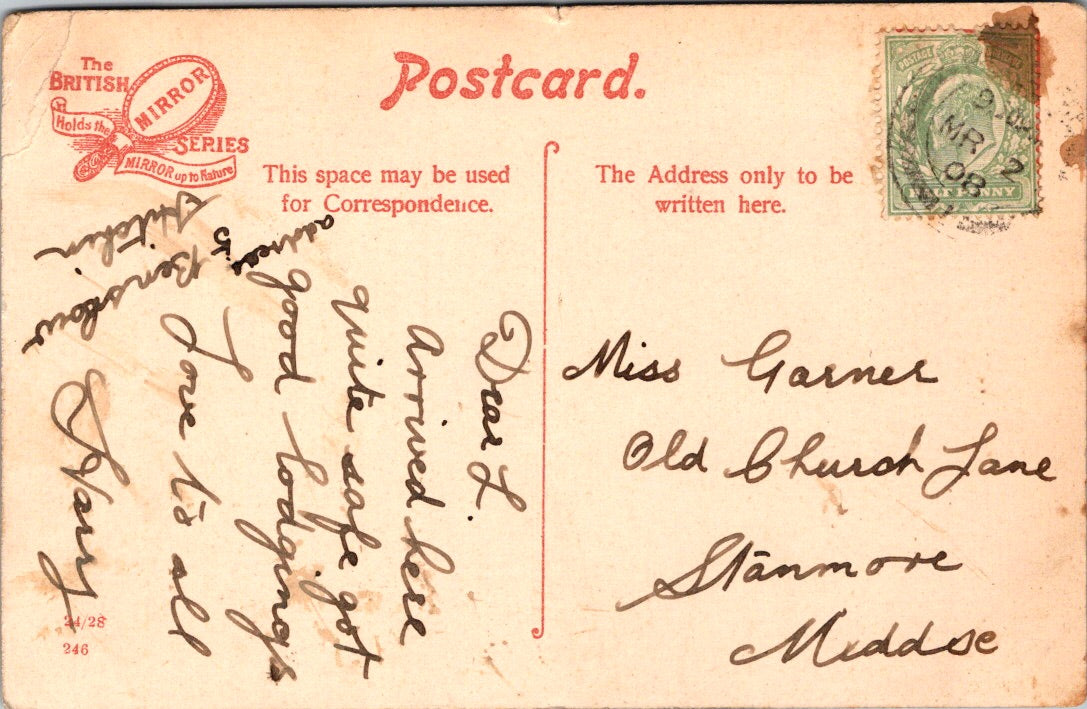 The
BRITISH
MIRROR
SERIES
Holds the
MIRROR up to Nature
Postcard.
This space may be used
for Correspondence.
The Address only to be
written here.
9
MR 2
08
POSTAGE
HALF PENNY
Dear L.
Arrived here
quite safe got
good lodgings
address
5
Benslow
Hitchin
Love to all
Harry
Miss Garner
Old Church Lane
Stanmore
Middsx
24/28
246